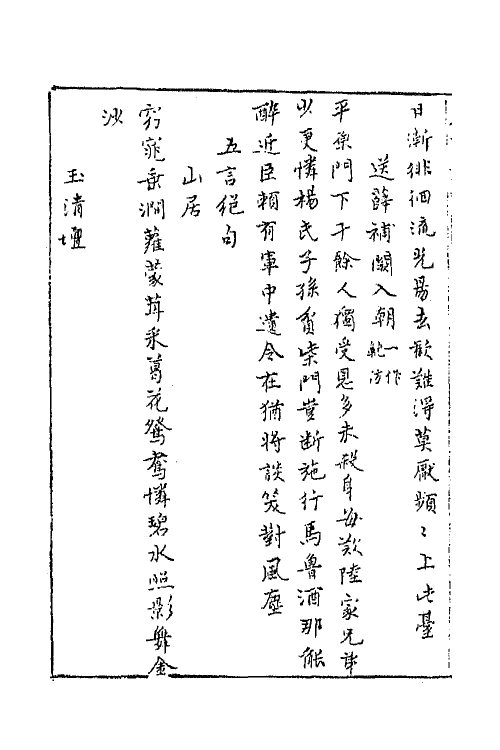 日漸徘徊流光易去歡難得莫厭頻〻上此臺
送薛補闕入朝一作鮑防
平原門下十餘人獨受恩多未殺身每歎陸家兄弟
少更憐楊氏子孫貧柴門豈断施行馬魯酒那能
醉近臣賴有軍中遺令在猶將談笑對風塵
五言絕句
山居
窈窕垂澗蘿蒙茸采葛花鴛鴦憐碧水照影舞金
沙
玉清壇